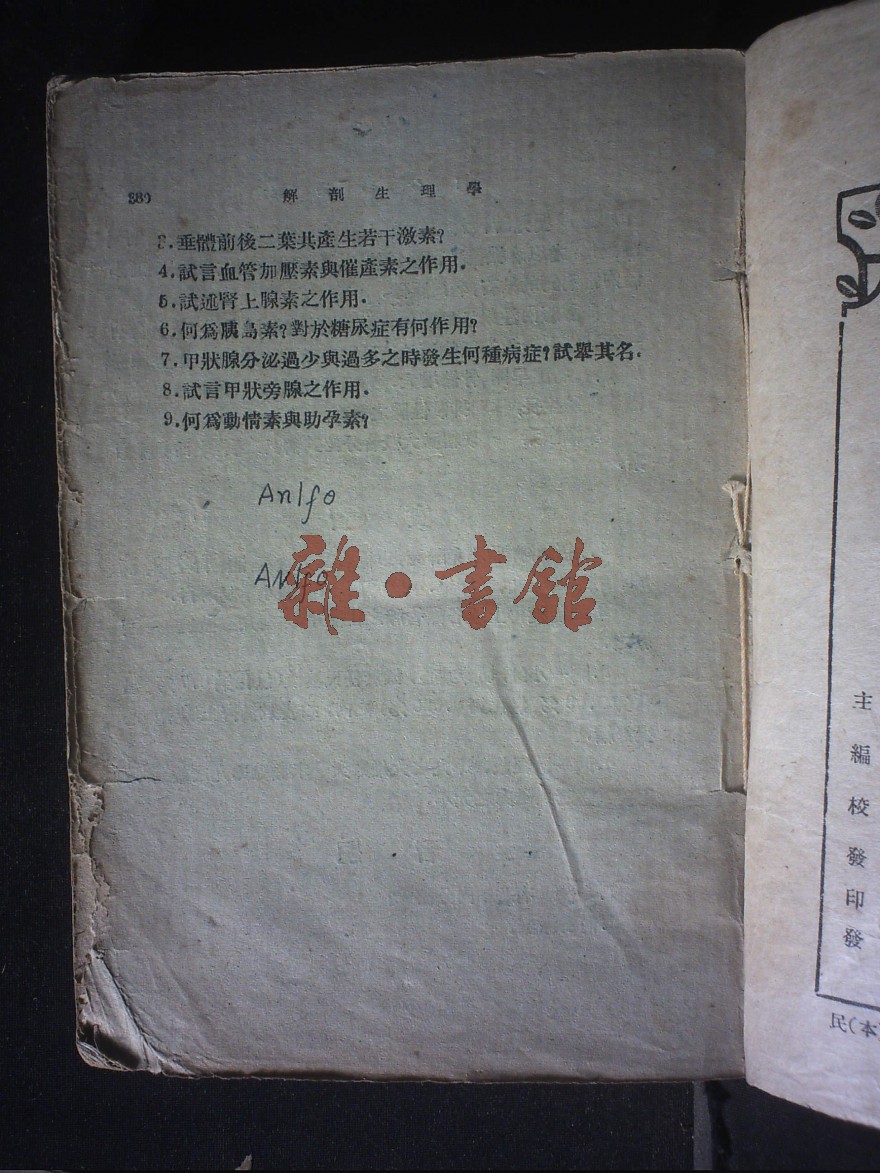 380 解剖生理學
3.垂體前後二葉共產生若干激素?
4.試言血管加壓素與催產素之作用.
5.試述腎上腺素之作用.
6.何爲胰島素?對於糖尿症有何作用?
7.甲狀腺分泌過少與過多之時發生何種病症?試舉其名.
8.試言甲狀旁腺之作用.
9.何爲動情素與助孕素?
雜·書館
主
編
校
發
印
發
民(本